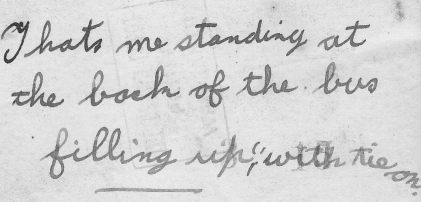 Thats me standing at
the back of the bus
filling up, with tie on.